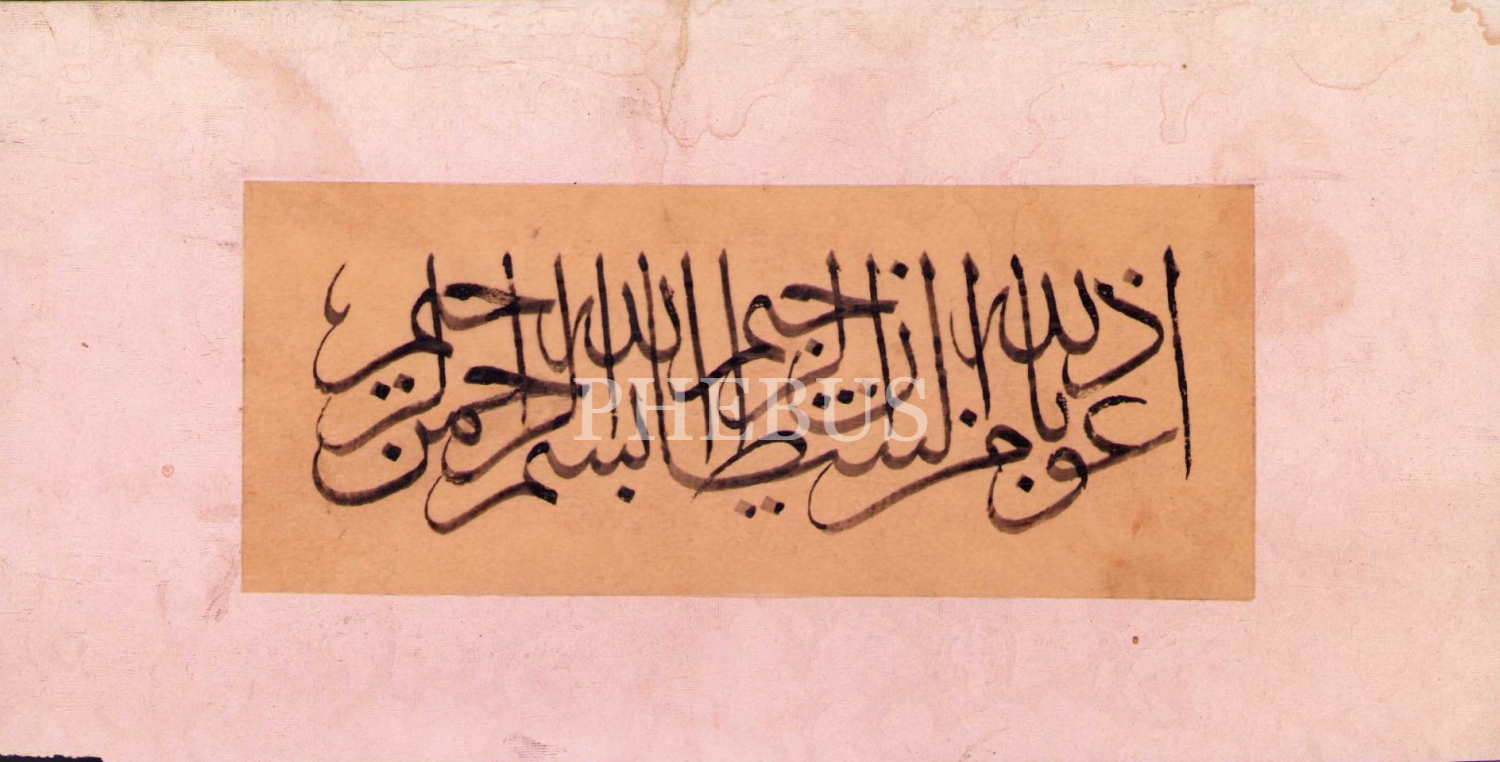 اعوذ بالله من الشيطان الرجيم بسم الله الرحمن الرحيم
PHEBUS